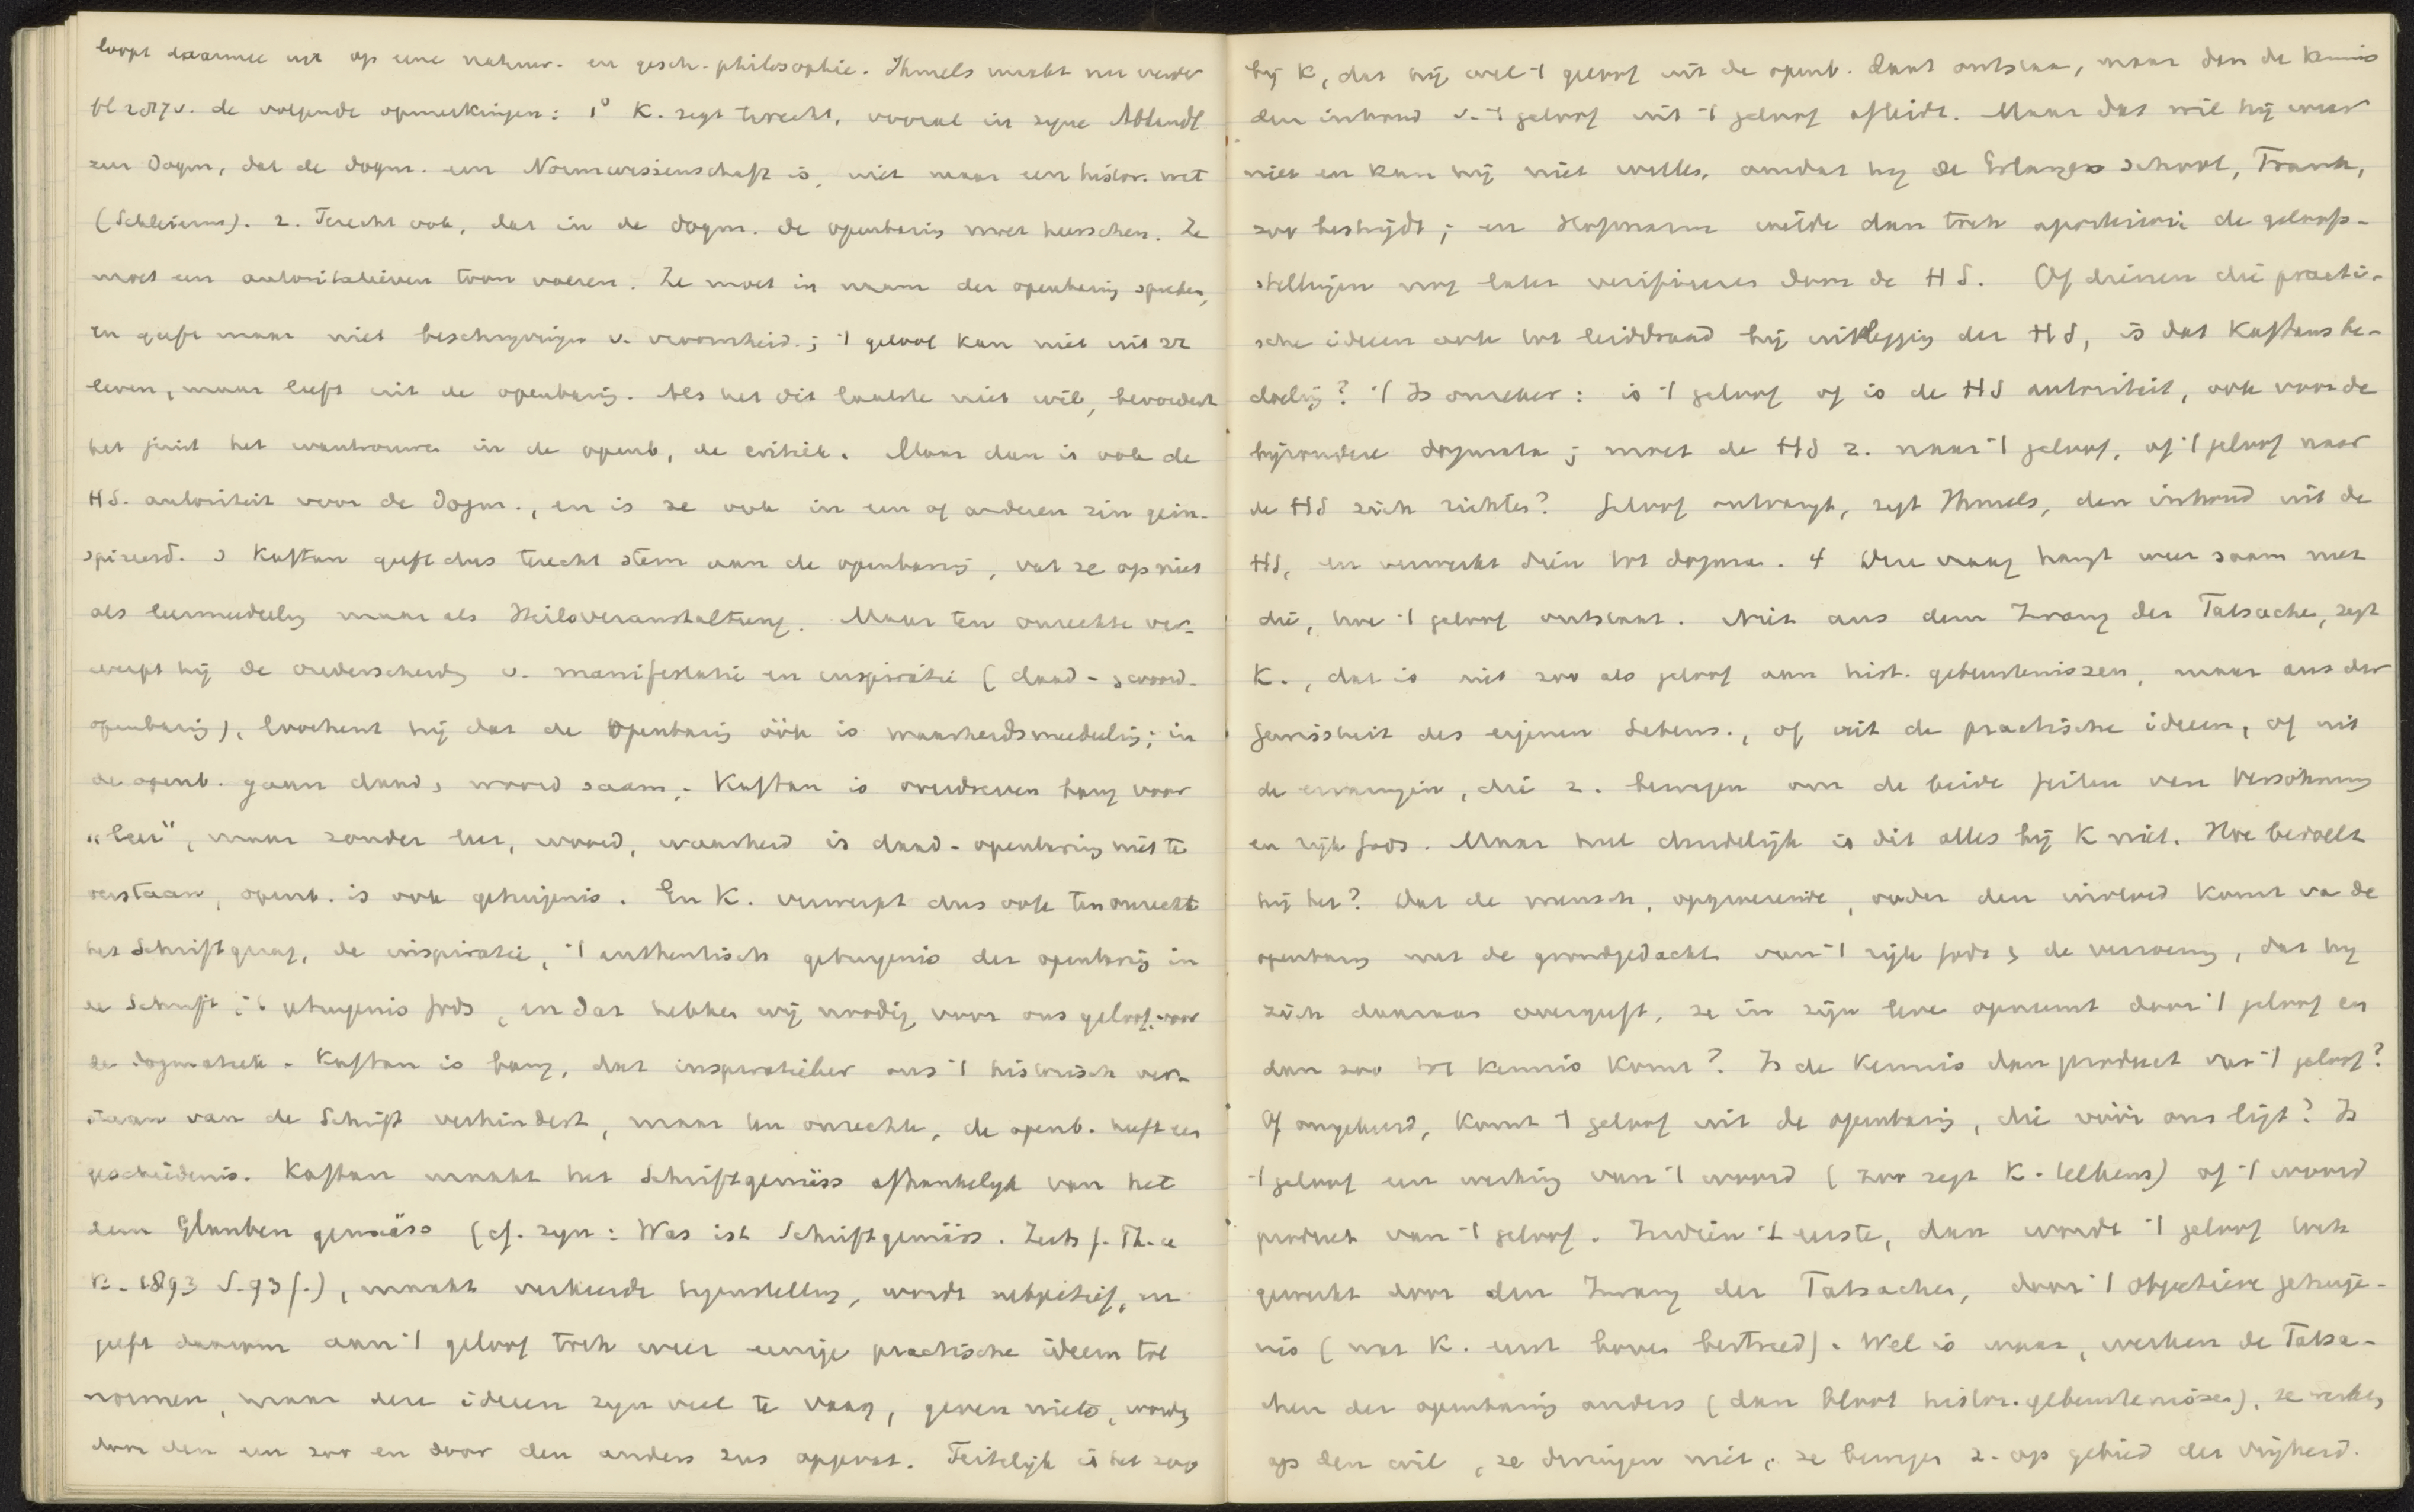 loopt daarmee uit op eene natuur- en gesch.-philosophie. Ihmels maakt nu verder
bl 287v. de volgende opmerkingen: 1° K. zegt terecht, vooral in zyne Abhandl
zur Dogm, dat de dogm. een Normwissenschaft is, niet maar een histor. wet
(Schleierm). 2. Terecht ook, dat in de dogm. de openbaring moet heerschen. Ze
moet een autoritatieven toon voeren. Ze moet in naam der openbaring spreken,
en geeft maar niet beschryvingen v. vroomheid.; 't geloof kan niet uit zz
leven, maar leeft uit de openbaring. Als het dit laatste niet wil, bevordert
het juist het wantrouwen in de openb, de critiek. Maar dan is ook de
HS. autoriteit voor de Dogm., en is ze ook in een of anderen zin geïn-
spireerd. 3 Kaftan geeft dus terecht stem aan de openbaring, vat ze op niet
als leermeedeeling maar als Heilsveranstaltung. Maar ten onrechte ver-
werpt hij de onderscheiding v. manifestatie en inspiratie (daad- & woord-
openbaring), loochent hij dat de Openbaring óók is waarheidsmeedeeling; in
de openb. gaan daad & woord saam. Kaftan is overdreven bang voor
"leer", maar zonder leer, woord, waarheid is daad-openbaring niet te
verstaan, openb. is ook getuigenis. En K. verwerpt dus ook ten onrecht
het Schriftgezag, de inspiratie, 't authentisch getuigenis der openbaring in
de Schrift is getuigenis Gods, en dat hebben wij noodig voor ons geloof, voor
de dogmatiek. Kaftan is bang, dat inspiratieleer ons 't historisch ver-
staan van de Schrift verhindert, maar ten onrechte, de openb. heeft een
geschiedenis. Kaftan maakt het Schriftgemäss afhankelyk van het
dem Glauben gemäss (cf. zyn: Was ist Schriftgemäss. Zeits f. Th. u
K. 1893 S. 93 f.), maakt verkeerde tegenstelling, wordt subjectief, en
geeft daarom aan 't geloof toch weer eenige practische ideeen tot
normen, maar deze ideeen zyn veel te vaag, geven niets, worden
door den een zoo en door den anders zus opgevat. Feitelyk is het zoo
bij K, dat hij wel 't geloof uit de openb. laat ontstaan, maar dan de kennis
den inhoud v. 't geloof uit 't geloof afleidt. Maar dat wil hij weer
niet en kan hij niet willen, omdat hij de Erlanger school, Frank,
zoo bestrijdt; en Hofmann wilde dan toch aposteriori de geloofs-
stellingen nog later verifieeren door de HS. Of dienen die practi-
sche ideeen ook tot leiddraad bij uitlegging der HS, is dat Kaftans be-
doeling? 't Is onzeker: is 't geloof of is de HS autoriteit, ook voor de
bijzondere dogmata; moet de HS z. naar 't geloof, of 't geloof naar
de HS zich richten? Geloof ontvangt, zegt Ihmels, den inhoud uit de
HS, en verwerkt dien tot dogma. 4 Deze vraag hangt weer saam met
die, hoe 't geloof ontstaat. Niet aus dem Zwang der Tatsachen, zegt
K., dat is niet zoo als geloof aan hist. gebeurtenissen, maar aus der
Gewissheit des eigenen Lebens., of uit de practische ideeen, of uit
de ervaringen, die z. bewegen om de beide feiten van Versöhnung
en rijk Gods. Maar heel duidelijk is dit alles bij K niet. Hoe bedoelt
hij het? Dat de mensch, opgroeiende, onder den invloed komt van de
openbaring met de grondgedachte van 't rijk Gods & de verzoening, dat hij
zich daaraan overgeeft, ze in zijn leven opneemt door 't geloof en
dan zoo tot kennis komt? Is de kennis dan product van 't geloof?
Of omgekeerd, komt 't geloof uit de openbaring, die vóór ons ligt? Is
't geloof een werking van 't woord (zoo zegt K. telkens) of 't woord
product van 't geloof. Indien 't eerste, dan wordt 't geloof toch
gewerkt door den Zwang der Tatsachen, door 't objectieve getuige-
nis (wat K. eerst boven bestreed). Wel is waar, werken de Tatsa-
chen der openbaring anders (dan bloot histor. gebeurtenissen), ze werken
op den wil, ze dwingen niet, ze bewegen z. op gebied der vrijheid.